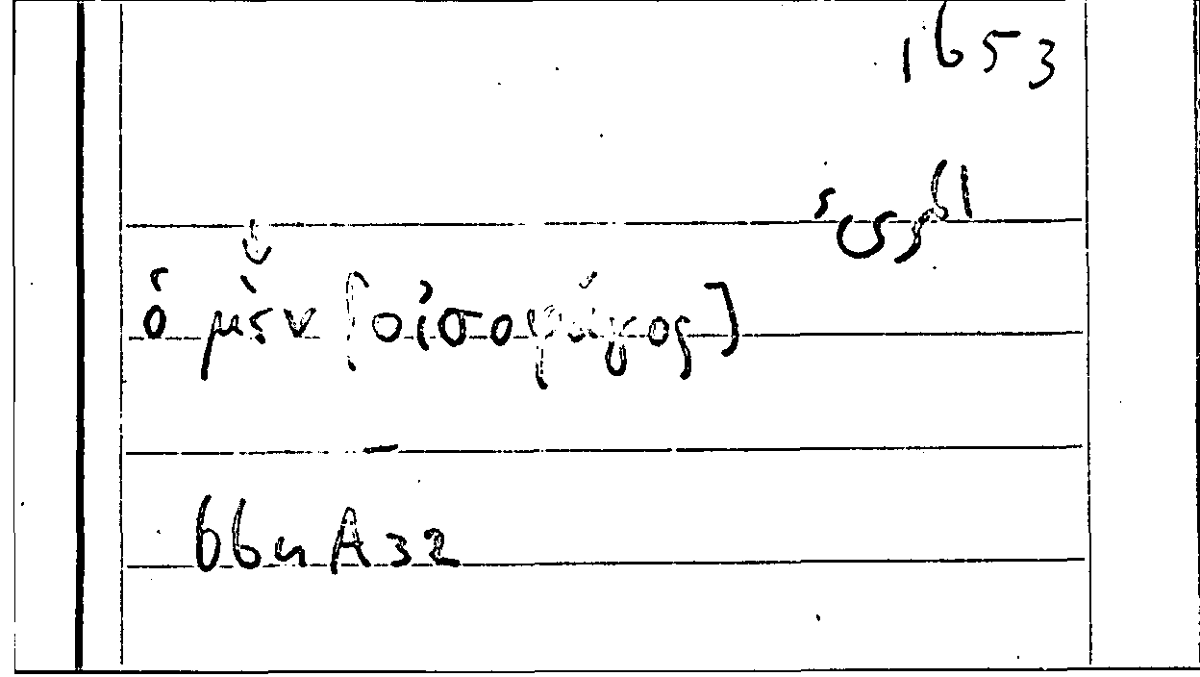 1653
المرىء
ὁ μὲν [οἰσοφάγος]
664 A 32